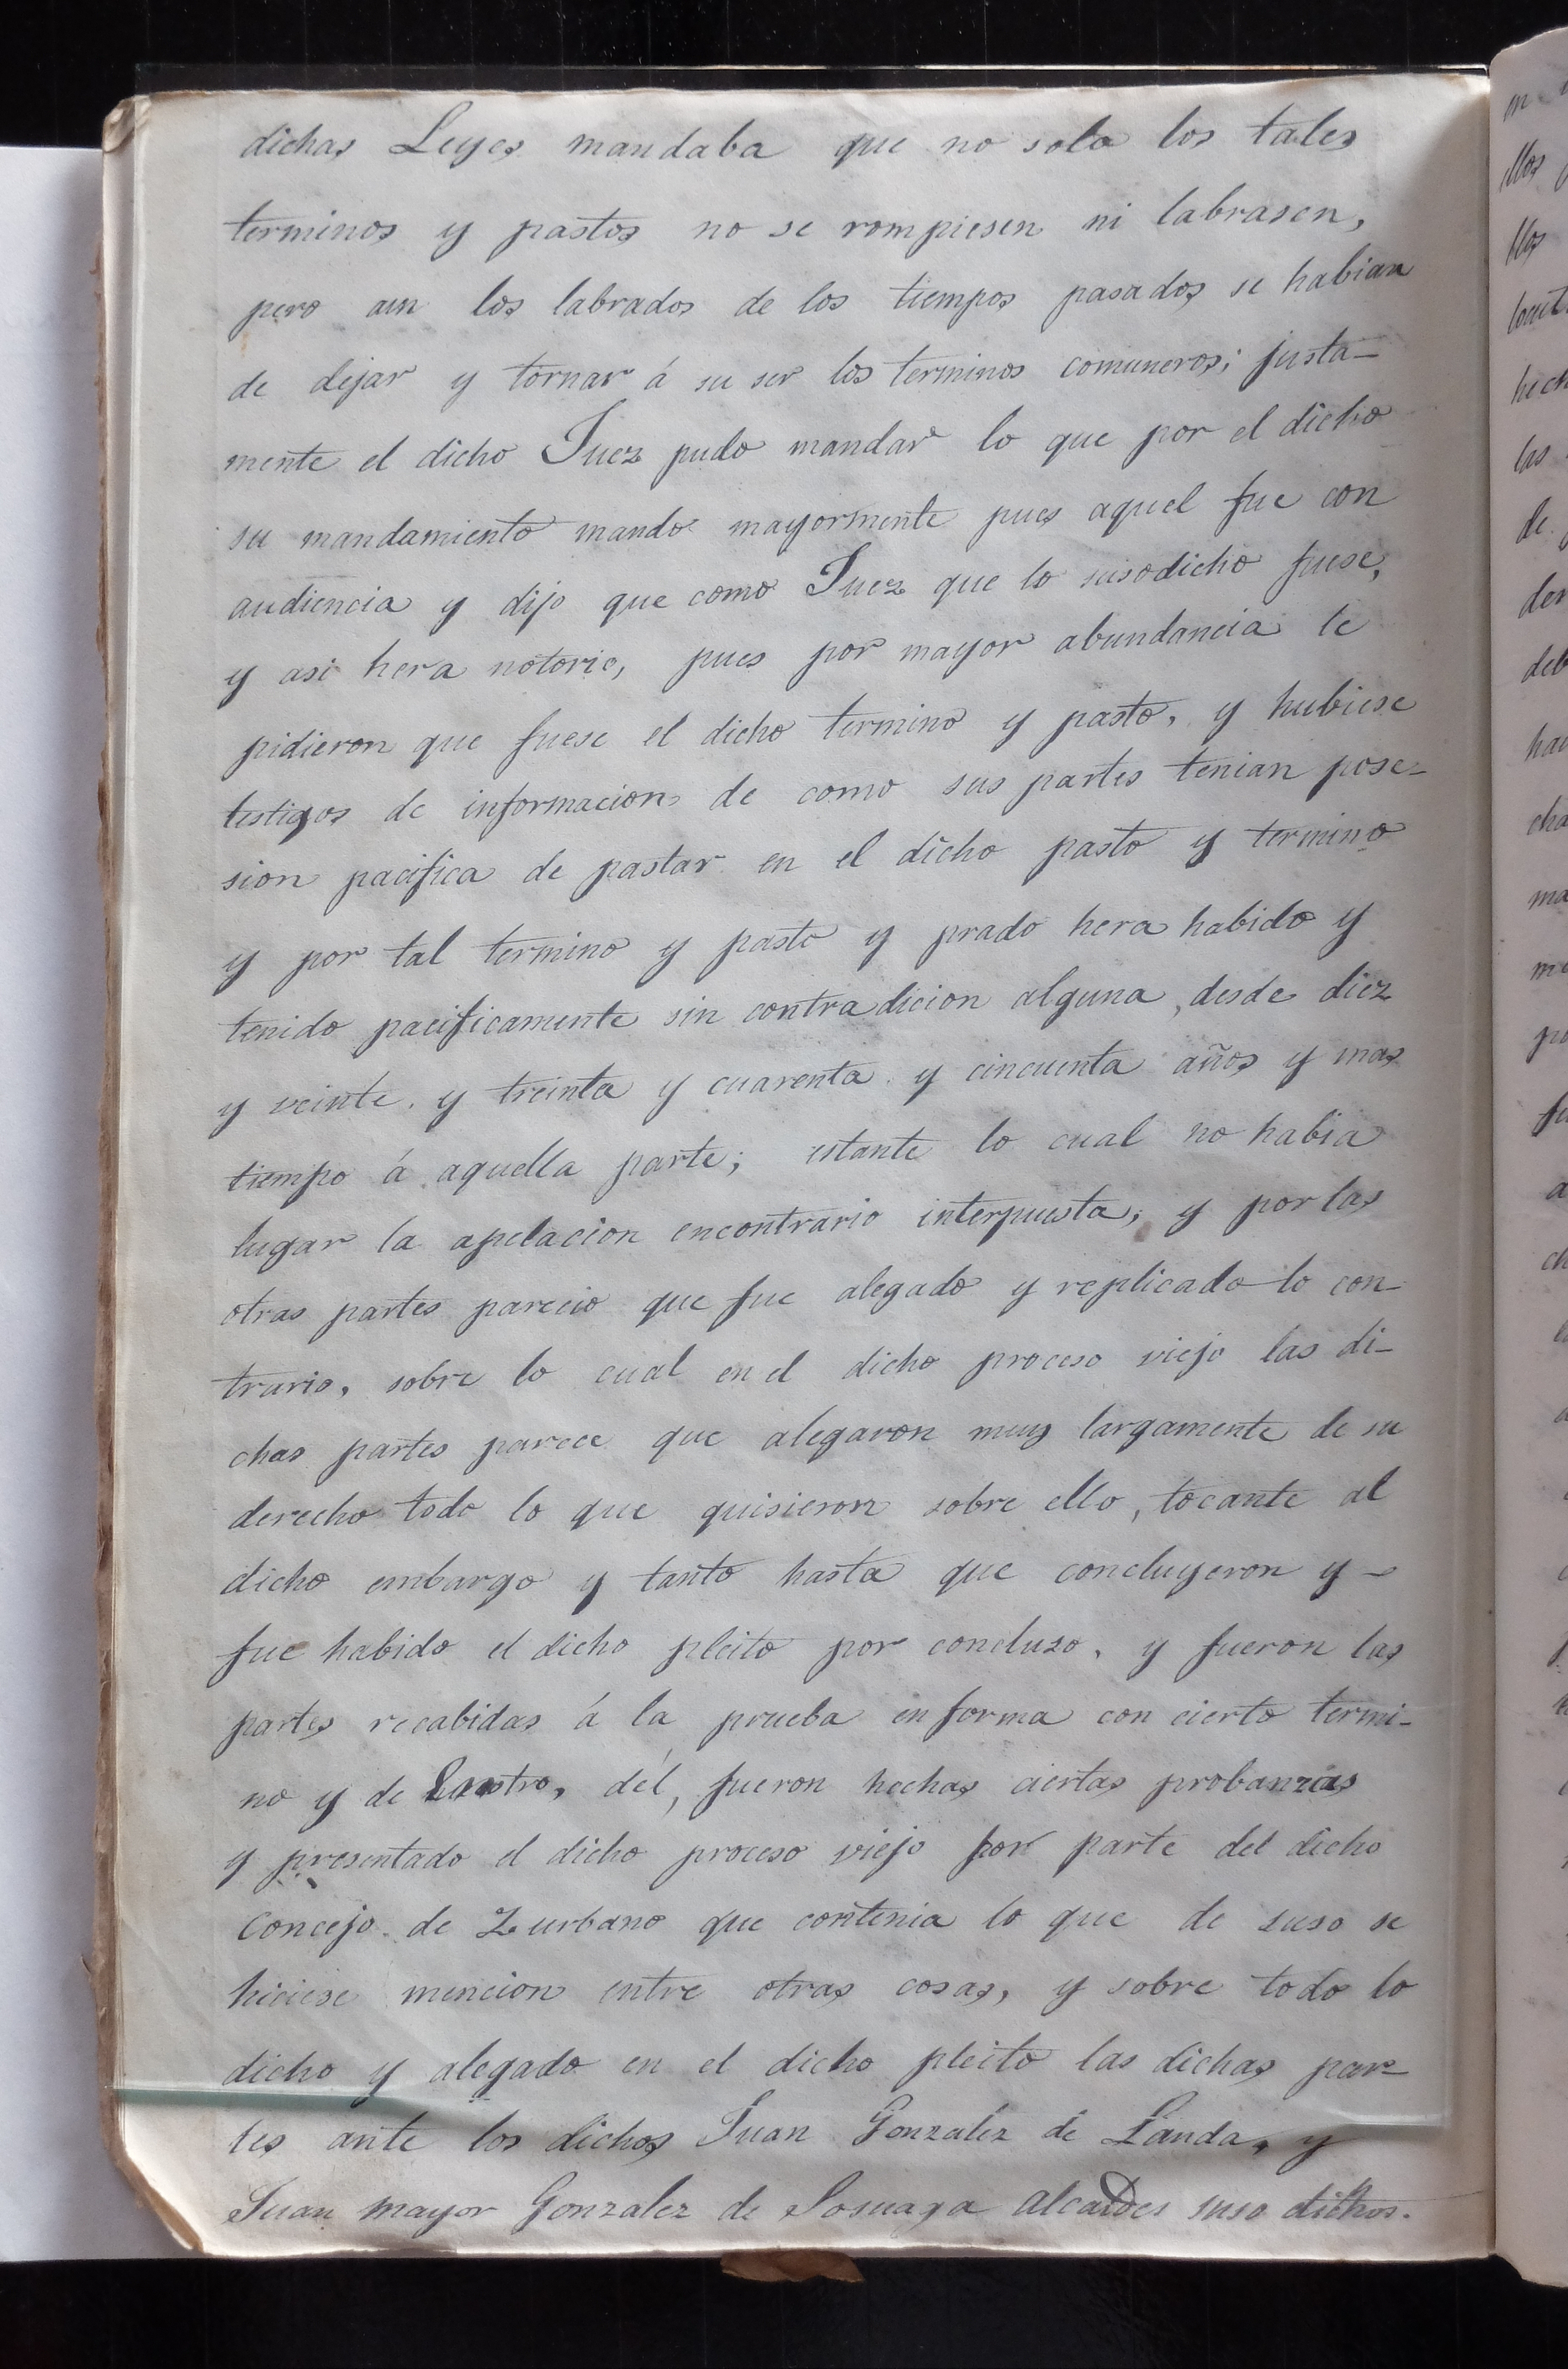 dichas Leyes mandaba que no solo los tales
terminos y pastos no se rompiesen ni labrasen,
pero aun los labrados de los tiempos pasados se habian
de dejar y tornar á su ser los terminos comuneros; justa-
mente el dicho Juez pudo mandar lo que por el dicho
su mandamiento mando mayormente pues aquel fue con
audiencia y dijo que como Juez que lo susodicho fuese,
y asi hera notorio, pues por mayor abundancia le
pidieron que fuese el dicho termino y pasto, y hubiese
testigos de informacion de como sus partes tenian pose-
sion pacifica de pastar en el dicho pasto y termino
y por tal termino y pasto y prado hera habido y
tenido pacificamente sin contradicion alguna, desde diez
y veinte y treinta y cuarenta y cincuenta años y mas
tiempo á aquella parte; estante lo cual no habia
lugar la apelacion encontrario interpuesta; y por las
otras partes parecio que fue alegado y replicado lo con-
trario, sobre lo cual en el dicho proceso viejo las di-
chas partes parece que alegaron muy largamente de su
derecho todo lo que quisieron sobre ello, tocante al
dicho embargo y tanto hasta que concluyeron y -
fue habido el dicho pleito por concluso, y fueron las
partes recabidas á la prueba en forma con cierto termi-
no y de dél, fueron hechas ciertas probanzas
y presentado el dicho proceso viejo por parte del dicho
Concejo de Zurbano que contenia lo que de suso se
hiciese mencion entre otras cosas, y sobre todo lo
dicho y alegado en el dicho pleito las dichas par-
tes ante los dichos Juan Gonzalez de Landa, y
Juan mayor Gonzalez de alcaldes suso dichos.